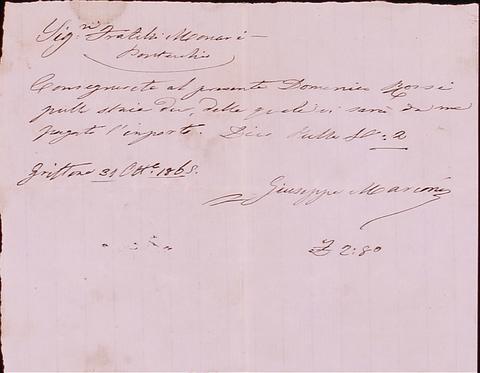 Sig.ri Fratelli Monari
Pontecchio
Consegnerete al presente Domenico Rossi
pulle staia due, delle quali vi sarà da me
pagato l'importo. Dico Pulle St: 2
Griffone 31 Ott.e 1865.
Giuseppe Marconi
£ 2:80